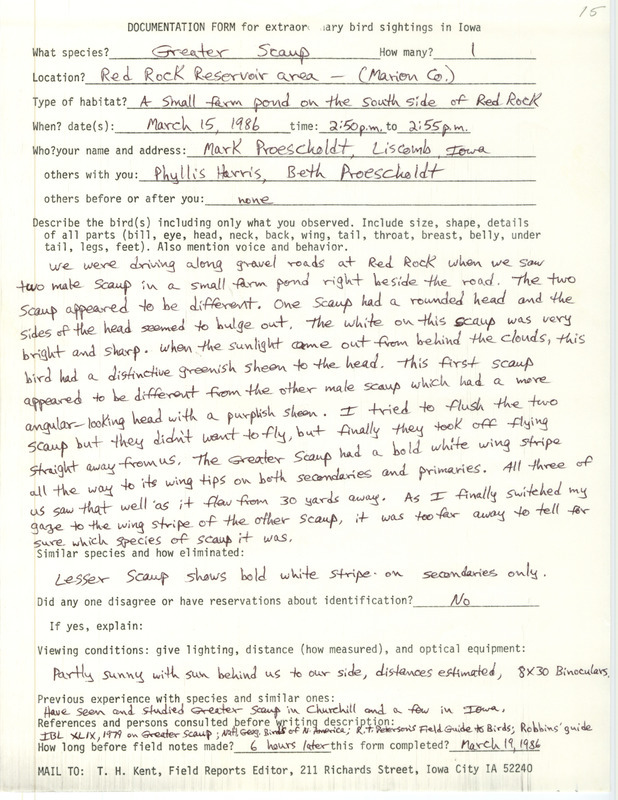 15
DOCUMENTATION FORM for extraor nary bird sightings in Iowa
What species? Greater Scaup How many? 1
Location? Red Rock Reservoir area - (Marion Co.)
Type of habitat? A small farm pond on the south side of Red Rock
When? date(s): March 15, 1986 time: 2:50p.m. to 2:55p.m.
Who?your name and address: Mark Proescholdt, Liscomb, Iowa
others with you: Phyllis Harris, Beth Proescholdt
others before or after you: none
Describe the bird(s) including only what you observed. Include size, shape, details
of all parts (bill, eye, head, neck, back, wing, tail, throat, breast, belly, under
tail, legs, feet). Also mention voice and behavior.
We were driving along gravel roads at Red Rock when we saw
two male scaup in a small farm pond right beside the road. The two
scaup appeared to be different. One scaup had a rounded head and the
sides of the head seemed to bulge out. The white on this scaup was very
bright and sharp. When the sunlight came out from behind the clouds, this
bird had a distinctive greenish sheen to the head. This first scaup
appeared to be different from the other male scaup which had a more
angular-looking head with a purplish sheen. I tried to flush the two
scaup but they didn't want to fly, but finally they took off flying
straight away from us. The Greater Scaup had a bold white wing stripe
all the way to its wing tips on both secondaries and primaries. All three of
us saw that well as it flew from 30 yards away. As I finally switched my
gaze to the wing stripe of the other scaup, it was too far away to tell for
sure which species of scaup it was.
Similar species and how eliminated:
Lesser Scaup shows bold white stripe on secondaries only.
Did any one disagree or have reservations about identification? No
If yes, explain:
Viewing conditions: give lighting, distance (how measured), and optical equipment:
Partly sunny with sun behind us to our side, distances estimated, 8X30 Binoculars.
Previous experience with species and similar ones:
Have seen and studied Greater Scaup in Churchill and a few in Iowa.
References and persons consulted before writing description:
IBL XLIX, 1979 on Greater Scaup; Natl. Geog. Birds of N. America; R.T. Peterson's Field Guide to Birds; Robbins' guide
How long before field notes made? 6 hours later this form completed? March 19, 1986
MAIL TO: T. H. Kent, Field Reports Editor, 211 Richards Street, Iowa City IA 52240